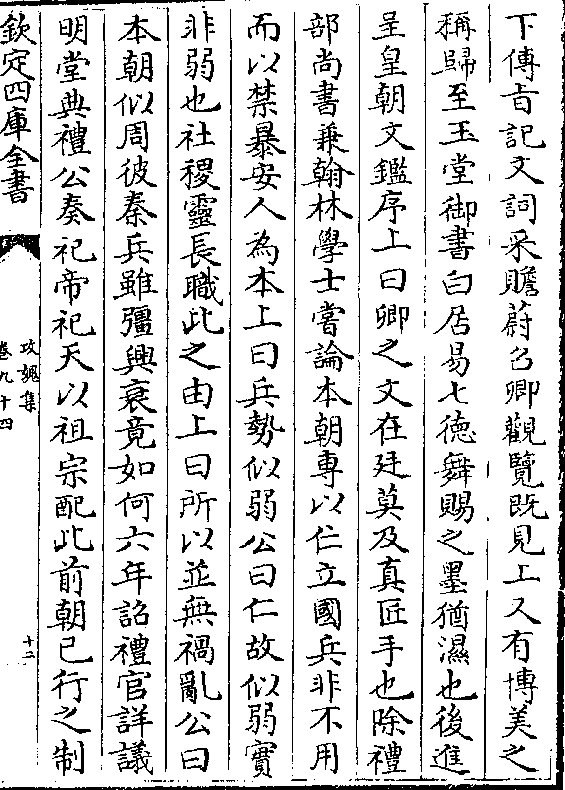 下傳旨記文詞采贍蔚召卿觀覽既見上又有博美之
稱歸至玉堂御書白居易七德舞賜之墨猶濕也後進
呈皇朝文鑑序上曰卿之文在廷莫及真匠手也除禮
部尚書兼翰林學士嘗論本朝專以仁立國兵非不用
而以禁暴安人為本上曰兵勢似弱公曰仁故似弱實
非弱也社稷靈長職此之由上曰所以並無禍亂公曰
本朝似周彼秦兵雖彊興衰竟如何六年詔禮官詳議
明堂典禮公奏祀帝祀天以祖宗配此前朝已行之制
欽定四庫全書
攻媿集
卷九十四
十二